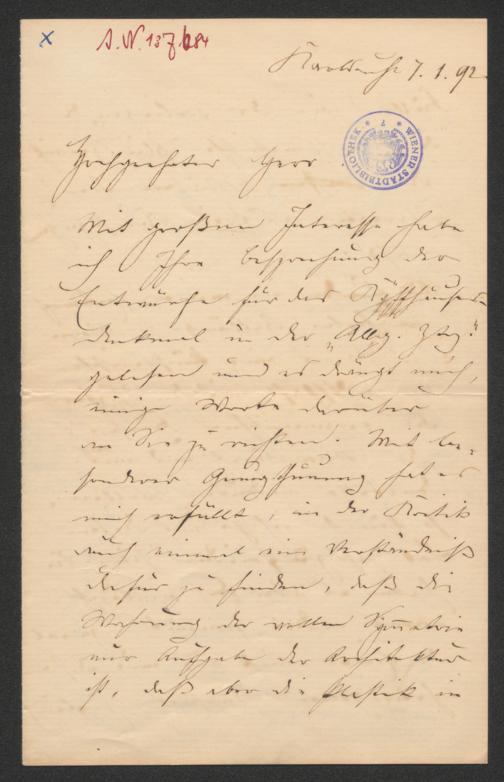 x
Karlsruhe 7. 1. 92.
WIENER STADTBIBLIOTHEK
Hochgeehrter Herr
Mit großem Interesse habe
ich Ihre Besprechung der
Entwürfe für das Kyffhäuser-
denkmal in der „Allg. Ztg."
gelesen und es drängt mich,
einige Worte darüber
an Sie zu richten. Mit be-
sonderer Genugthuung hat es
mich erfüllt, in der Kritik
auch einmal ein Verständniß
dafür zu finden, daß die
Wahrung der vollen Symmetrie
nur Aufgabe der Architektur
ist, daß aber die Plastik in